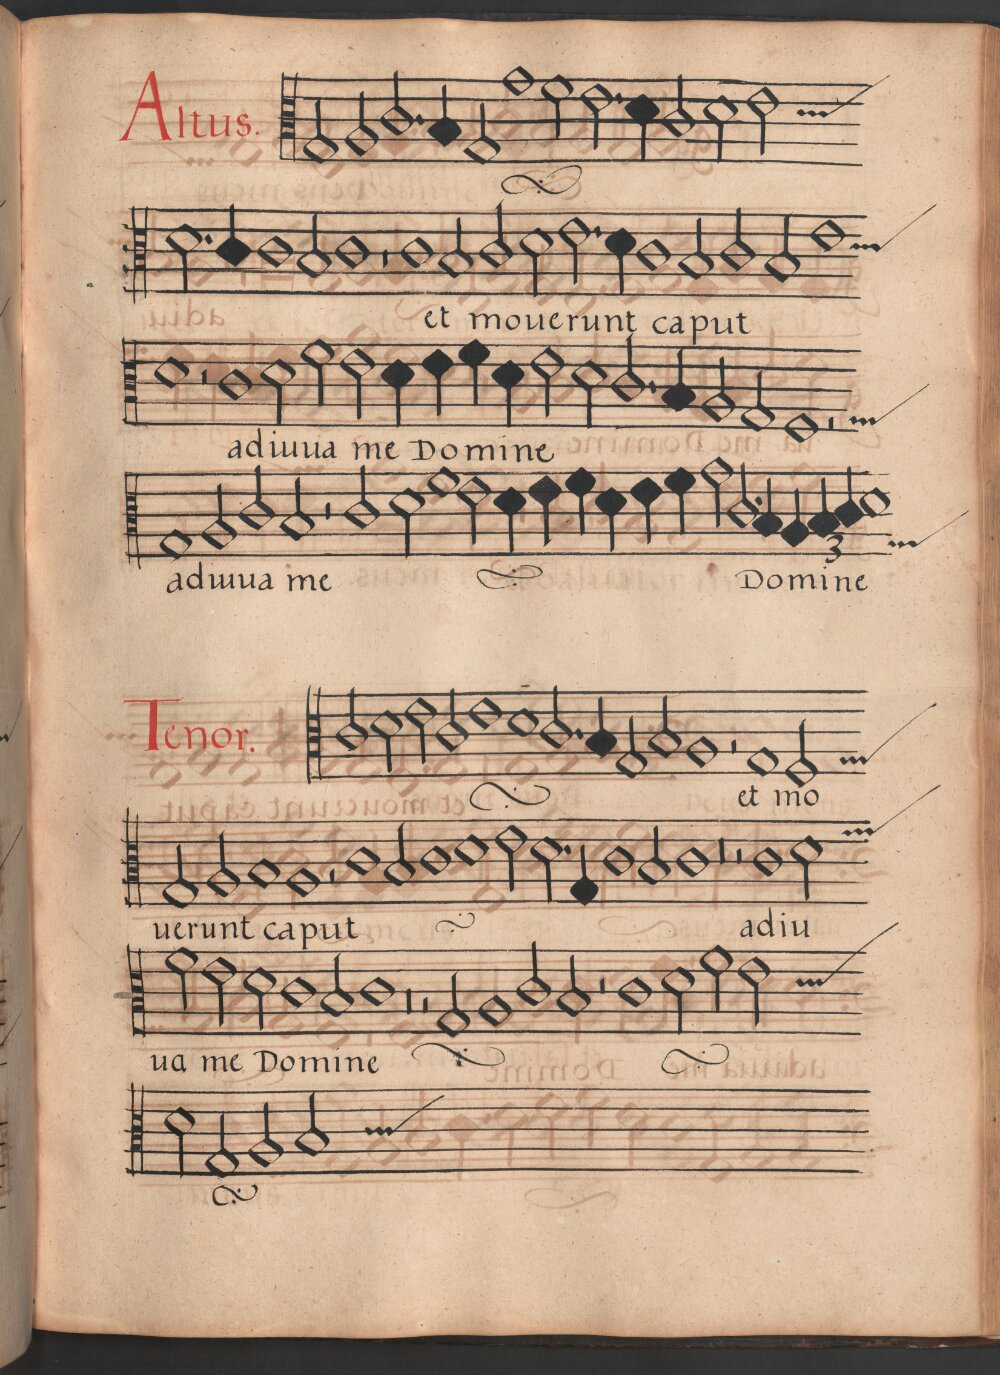 Altus.
et mouerunt caput
adiuua me Domine
adiuua me Domine
3
Tenor.
et mo
uerunt caput adiu
ua me Domine